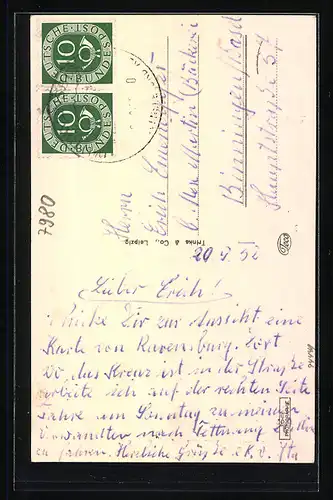 DEUTSCHE BUNDESPOST
10
DEUTSCHE BUNDESPOST
10
Herrn
Erich
b. Martin (Bäckerei
Binningen/Basel
Hauptstraße 37
Trinks & Co., Leipzig
7980
20.9.52
Lieber Erich!
Schicke Dir zur Ansicht eine
Karte von Ravensburg. Dort
wo das Kreuz ist in der Straße
arbeite ich auf der rechten Seite
Fahre am Sonntag zu meinen
Verwandten nach Tettnang
zu fahren. Herzliche Grüße